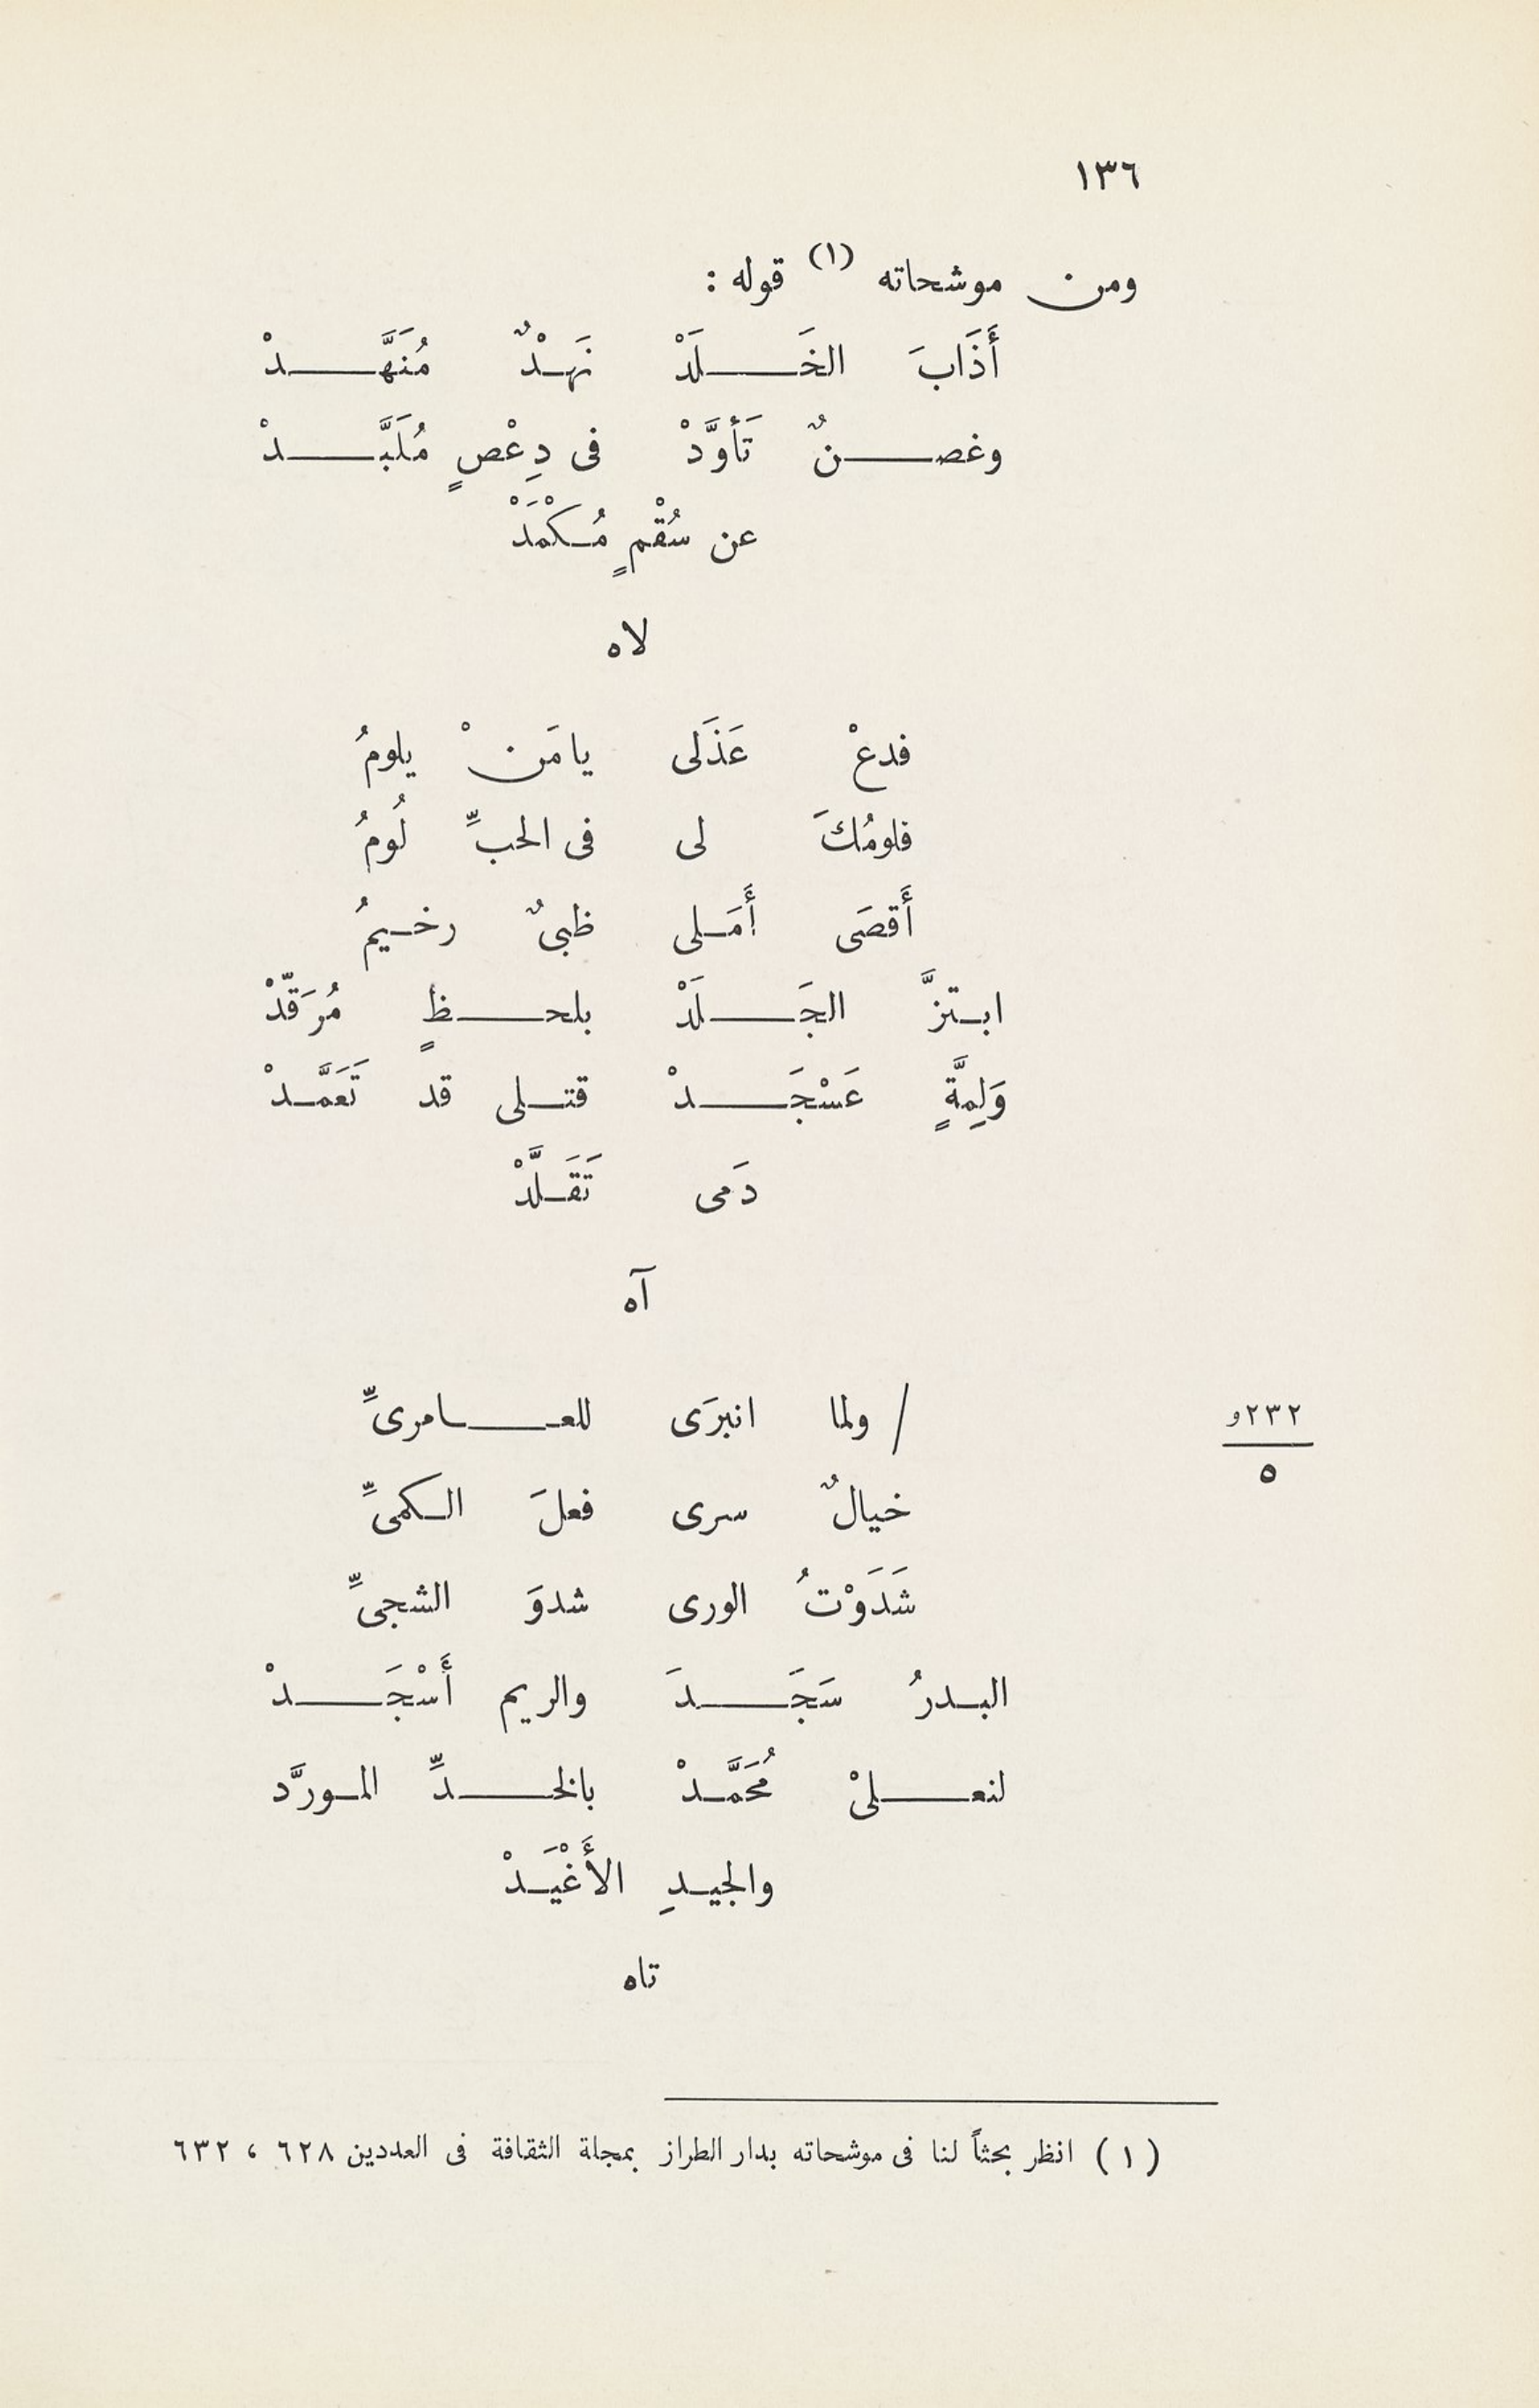 ١٣٦
ومن موشحاته (١) قوله :
أَذَابَ الخَلَدْ نَهْدٌ مُنَهَّدْ
وغصنٌ تَأَوَّدْ فى دِعْصٍ مُلَبَّدْ
عن سُقْمٍ مُكْمَدْ
لاه
فدعْ عَذَلى يا مَنْ يلومُ
فلومُكَ لى فى الحبِّ لُومُ
أَقصَى أَمَلى ظبىٌ رخيمُ
ابتزَّ الجَلَدْ بلحظٍ مُرَقّدْ
وَلِمَّةٍ عَسْجَدْ قتلى قد تَعَمَّدْ
دَمى تَقَلَّدْ
آه
/ ولما انبرَى للعامرىِّ
٢٣٢و
٥
خيالٌ سرى فعلَ الكمىِّ
شَدَوْتُ الورى شدوَ الشجىِّ
البدرُ سَجَدَ والريم أَسْجَدْ
لنعلىْ مُحَمَّدْ بالخدِّ المورَّد
والجيدِ الأَغْيَدْ
تاه
(١) انظر بحثاً لنا فى موشحاته بدار الطراز بمجلة الثقافة فى العددين ٦٢٨ ، ٦٣٢